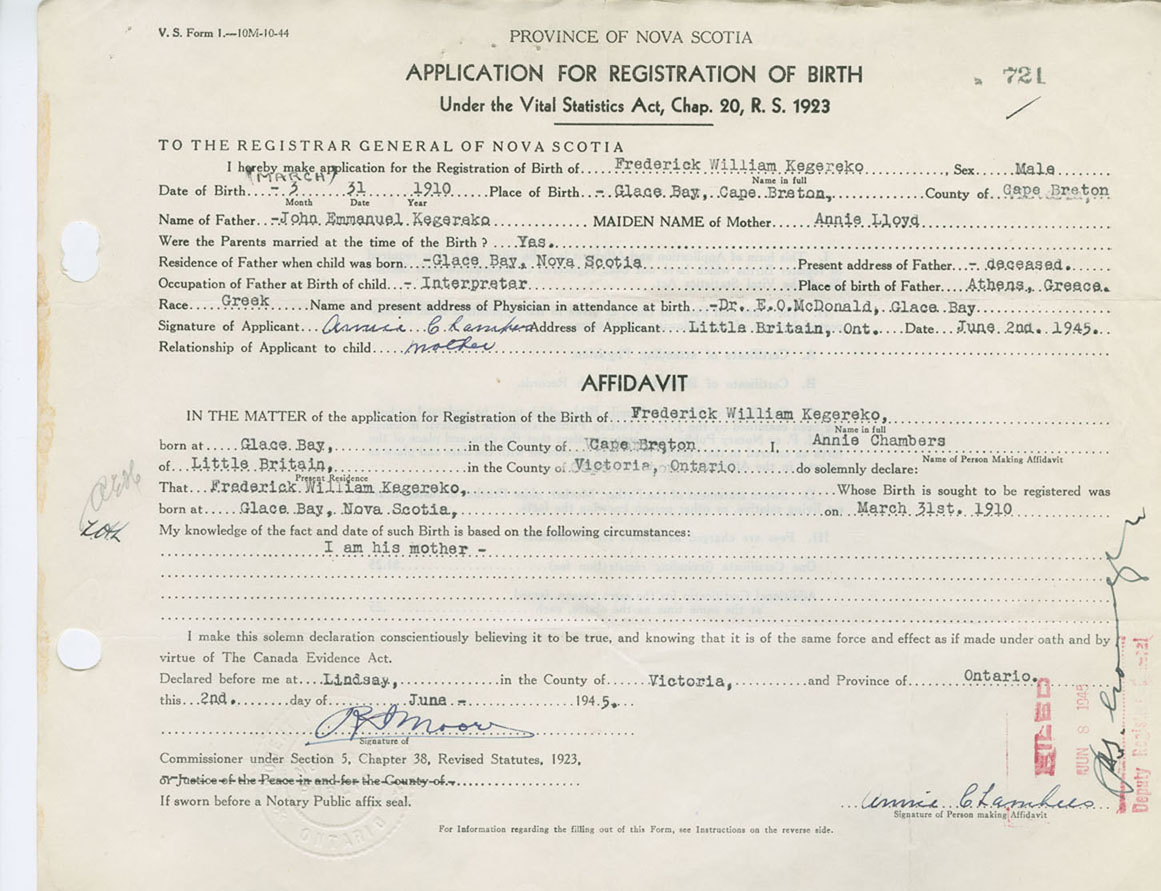 V. S. Form 1.—10M-10-44
PROVINCE OF NOVA SCOTIA
APPLICATION FOR REGISTRATION OF BIRTH
721
Under the Vital Statistics Act, Chap. 20, R. S. 1923
TO THE REGISTRAR GENERAL OF NOVA SCOTIA
I hereby make application for the Registration of Birth of Frederick William Kegereko, Sex Male
Name in full
(MARCH)
Date of Birth - 3 31 1910 Place of Birth - Glace Bay, Cape Breton, County of Cape Breton
Month Date Year
Name of Father - John Emmanuel Kegereko MAIDEN NAME of Mother Annie Lloyd
Were the Parents married at the time of the Birth? Yes.
Residence of Father when child was born - Glace Bay, Nova Scotia Present address of Father - deceased.
Occupation of Father at Birth of child - Interpreter Place of birth of Father Athens, Greece.
Race Greek Name and present address of Physician in attendance at birth - Dr. E.O.McDonald, Glace Bay
Signature of Applicant Annie Chambers Address of Applicant Little Britain, Ont. Date June 2nd. 1945.
Relationship of Applicant to child mother
AFFIDAVIT
IN THE MATTER of the application for Registration of the Birth of Frederick William Kegereko,
Name in full
born at Glace Bay, in the County of Cape Breton I, Annie Chambers
Name of Person Making Affidavit
of Little Britain, in the County of Victoria, Ontario do solemnly declare:
Present Residence
That Frederick William Kegereko, Whose Birth is sought to be registered was
born at Glace Bay, Nova Scotia, on March 31st. 1910
My knowledge of the fact and date of such Birth is based on the following circumstances:
I am his mother -
I make this solemn declaration conscientiously believing it to be true, and knowing that it is of the same force and effect as if made under oath and by
virtue of The Canada Evidence Act.
Declared before me at Lindsay, in the County of Victoria, and Province of Ontario.
this 2nd. day of June - 1945.
Signature of
Commissioner under Section 5, Chapter 38, Revised Statutes, 1923,
or Justice of the Peace in and for the County of
If sworn before a Notary Public affix seal.
Annie Chambers
Signature of Person making Affidavit
For Information regarding the filling out of this Form, see Instructions on the reverse side.
FILED
JUN 8 1945
Deputy Registrar General
ONTARIO